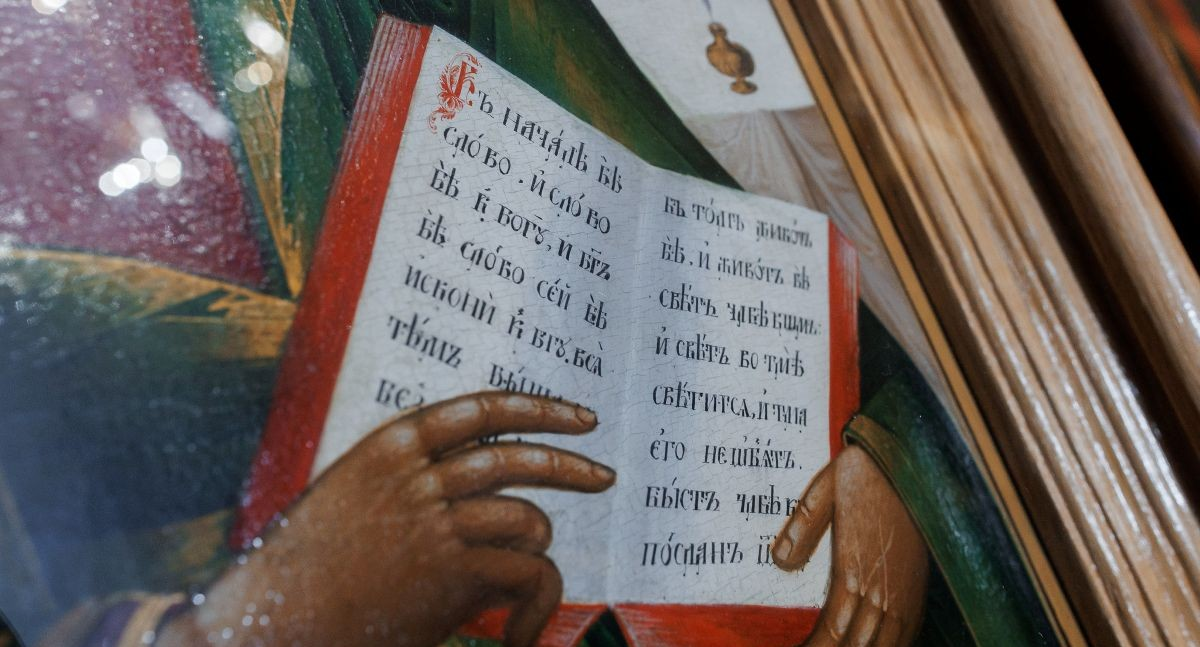 Въ нача́лѣ бѣ̀
сло́во . и҆ сло́во
бѣ̀ к̾ богꙋ̀, и҆ бг҃ъ
бѣ̀ сло́во се́й бѣ̀
и҆сконѝ к̾ бгꙋ . всѧ̑
тѣ́мъ бы́ша
без̾
въ то́мъ живо́тъ
бѣ̀ . и҆ живо́тъ бѣ̀
свѣ́тъ члв҃ѣкѡмъ:
и҆ свѣ́тъ во тмѣ̀
свѣ́титсѧ, и҆ тма̀
є҆гѡ̀ не ѡ҆б̾ѧ́тъ.
бы́сть члв҃ѣкъ
по́сланъ